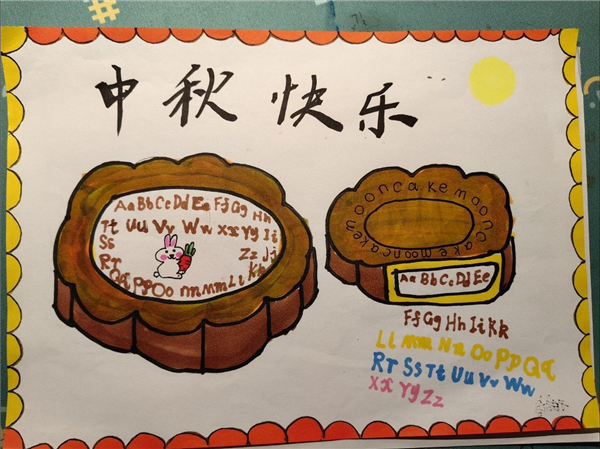 中秋快乐
Aa Bb Cc Dd Ee Ff Gg Hh
Ii Jj Kk Ll Mm Nn Oo Pp Qq
Rr Ss Tt Uu Vv Ww Xx Yy
Zz
mooncake mooncake mooncake mooncake
Aa Bb Cc Dd Ee
Ff Gg Hh Ii Kk
Ll Mm Nn Oo Pp Qq
Rr Ss Tt Uu Vv Ww
Xx Yy Zz